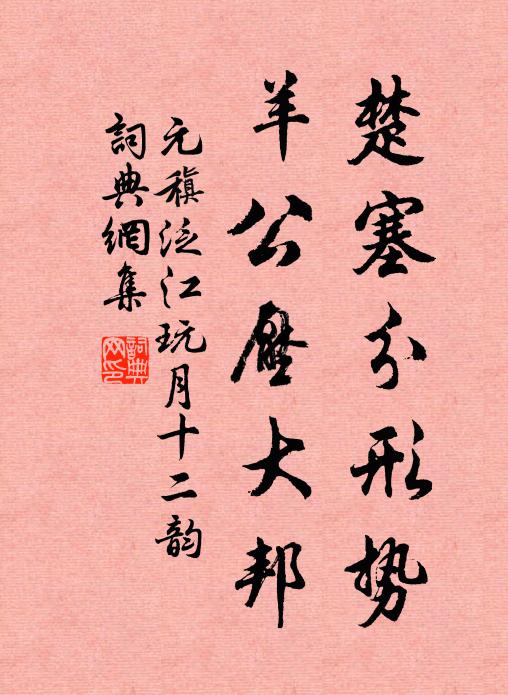 楚塞分形势
羊公压大邦
元稹泛江玩月十二韵
詞典網集
詞典网印